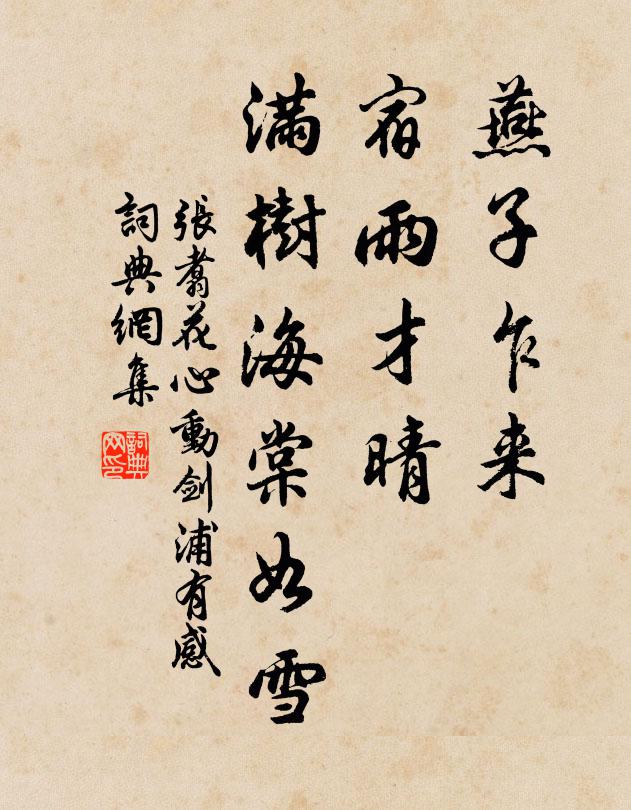 燕子乍来
宿雨才晴
滿樹海棠如雪
張翥花心動劍浦有感
詞典網集
詞典
网印